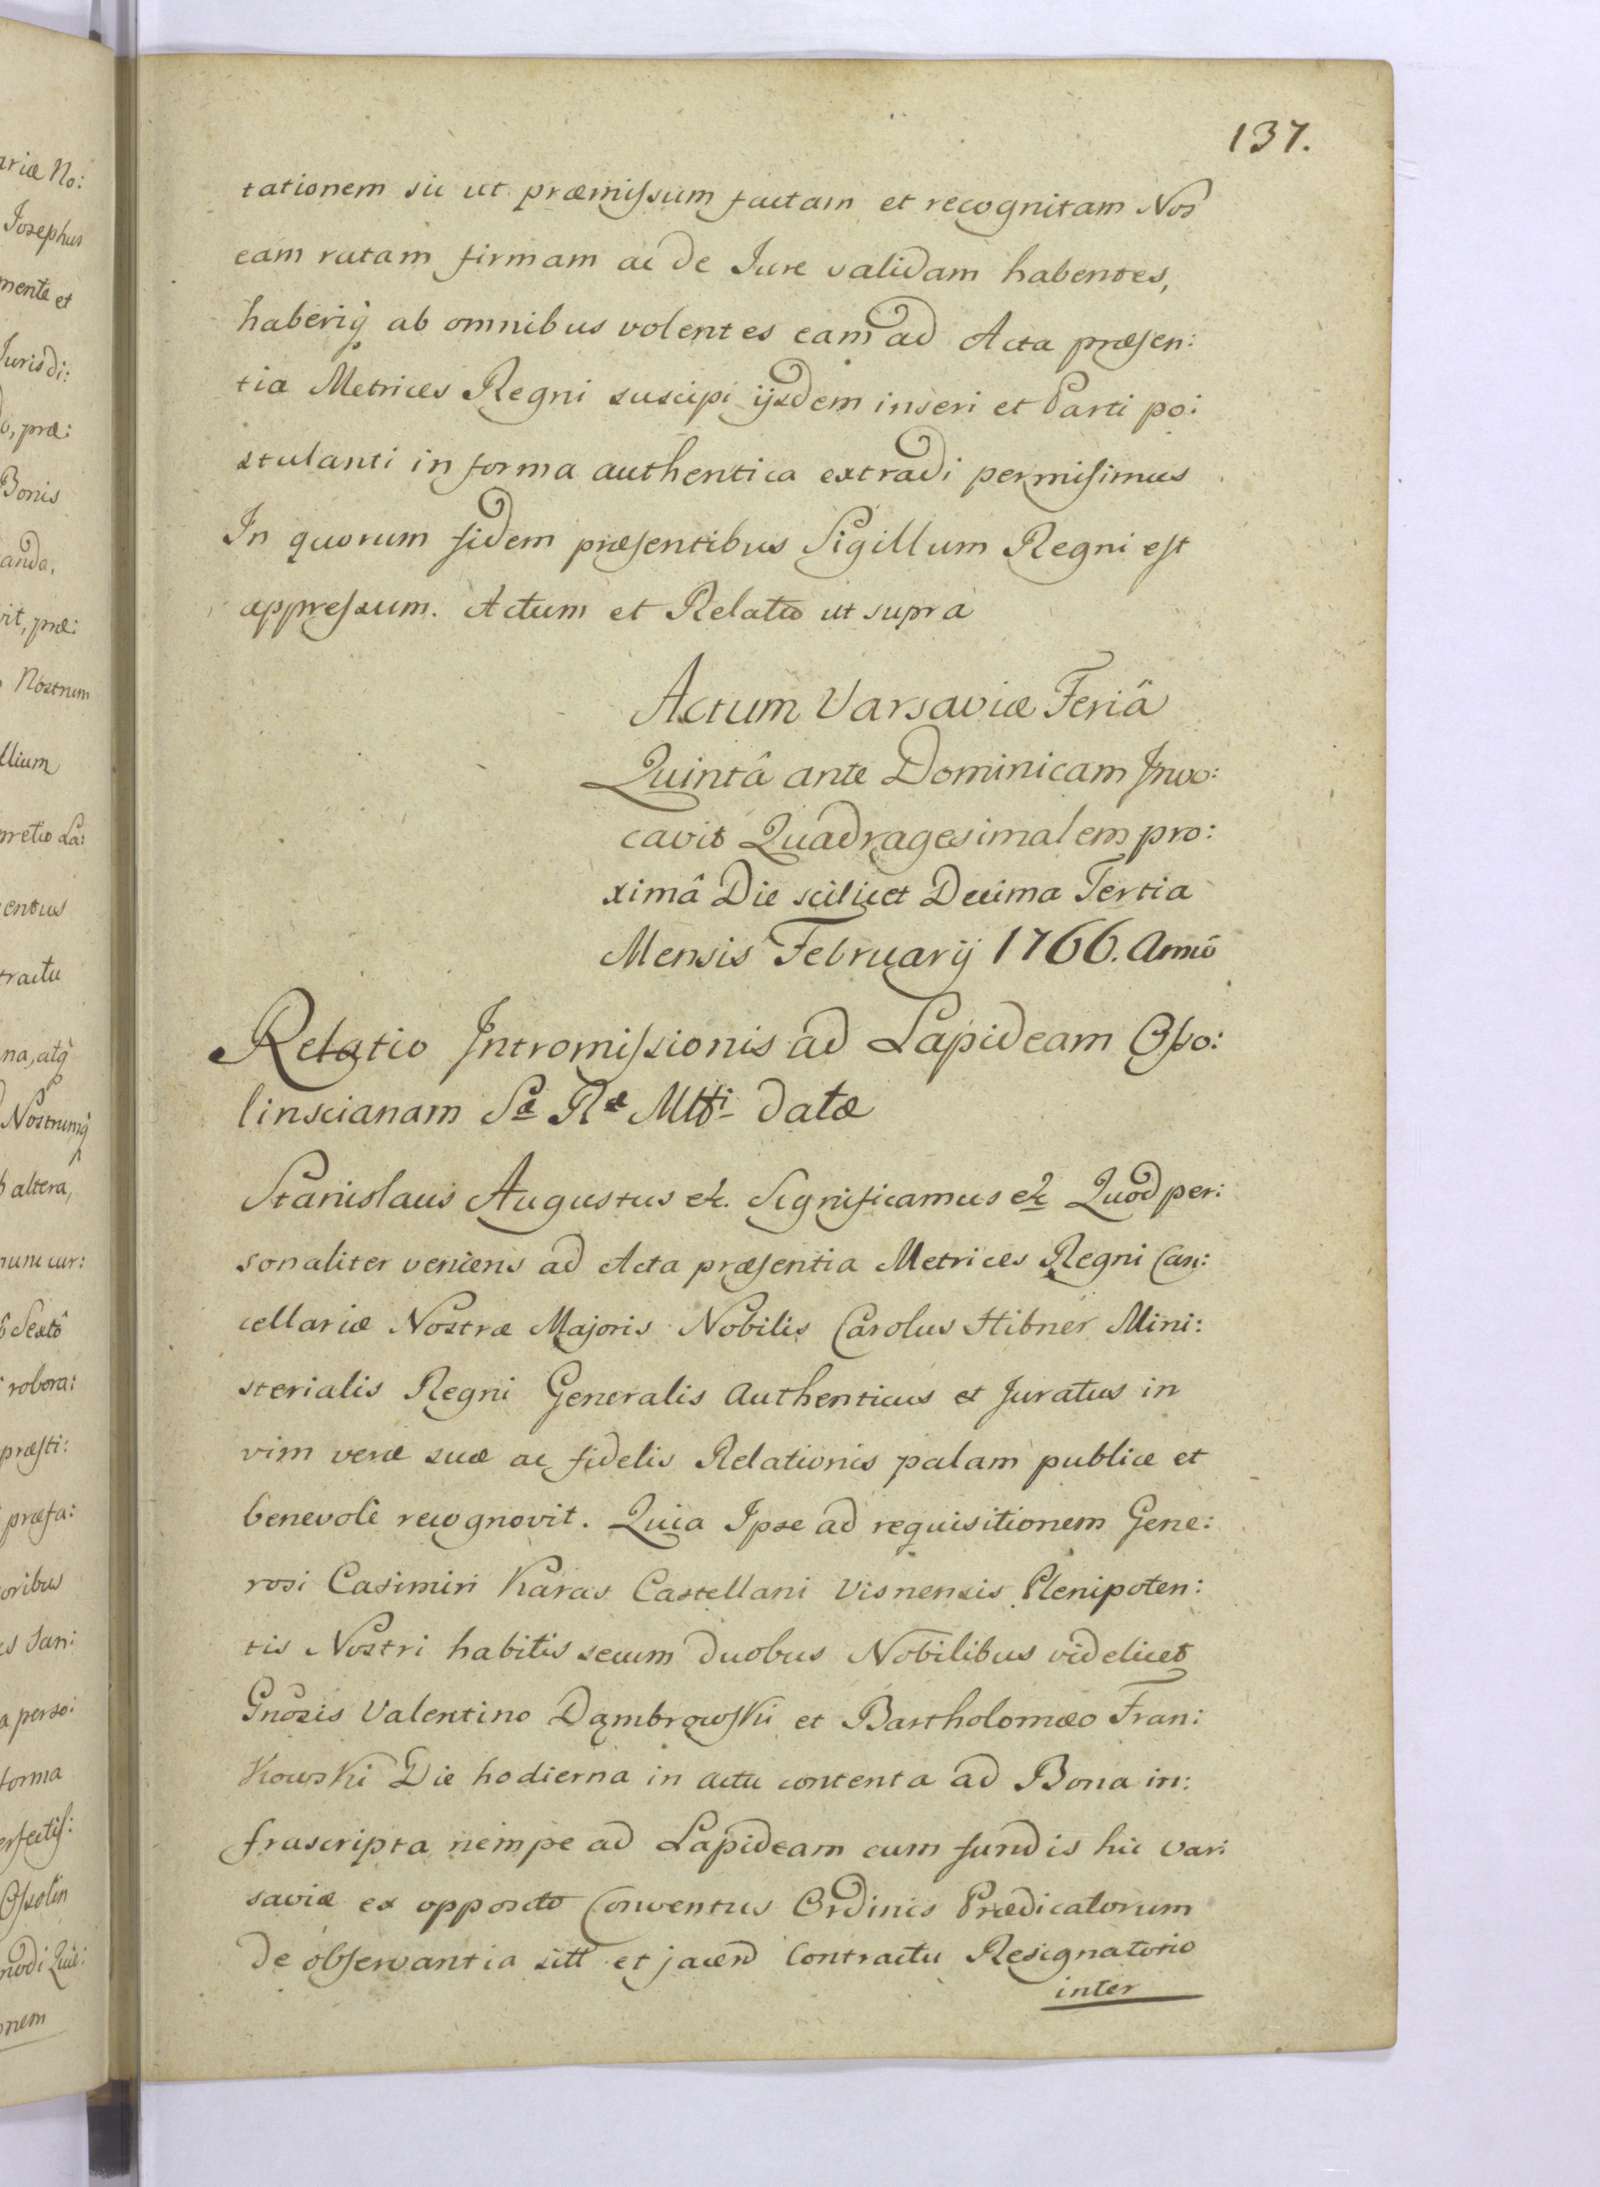 137.
tationem sic ut præmissum factam et recognitam Nos
eam ratam firmam ac de Jure validam habentes,
haberiq̃ ab omnibus volentes eam ad Acta præsen:
tia Metrices Regni suscipi ijsdem inseri et Parti po:
stulanti in forma authentica extradi permisimus
In quorum fidem præsentibus Sigillum Regni est
appressum. Actum et Relatio ut supra
Actum Varsaviæ Feriâ
Quintâ ante Dominicam Invo:
cavit Quadragesimalem pro:
ximâ Die scilicet Decima Tertia
Mensis Februarij 1766. Annô
Relatio Intromissionis ad Lapideam Osso:
linscianam Sæ Ræ Mtti datæ
Stanislaus Augustus &c. Significamus &c Quod per:
sonaliter veniens ad Acta præsentia Metrices Regni Can:
cellariæ Nostræ Majoris Nobilis Carolus Hibner Mini:
sterialis Regni Generalis Authenticus et Juratus in
vim veræ suæ ac fidelis Relationis palam publice et
benevolè recognovit. Quia Ipse ad requisitionem Gene:
rosi Casimiri Karas Castellani Visnensis Plenipoten:
tis Nostri habitis secum duobus Nobilibus videlicet
Gnosis Valentino Dąmbrowski et Bartholomæo Fran:
kowski Die hodierna in actu contenta ad Bona in:
frascripta nempe ad Lapideam cum fundis hic Var:
saviæ ex opposito Conventus Ordinis Prædicatorum
de observantia sitt et jacend Contractu Resignatorio
inter
ariæ No:
Josephus
mente et
Jurisdi:
præ:
Bonis
anda,
vit, præ:
Nostrum
llium
pretio La:
entus
tractu
na, atq̃
Nostrumq̃
altera,
nunc cur:
Sextô
robora:
præsti:
præfa:
oribus
es San:
a perso:
forma
erfectis:
Ossolin
modi Qui:
onem